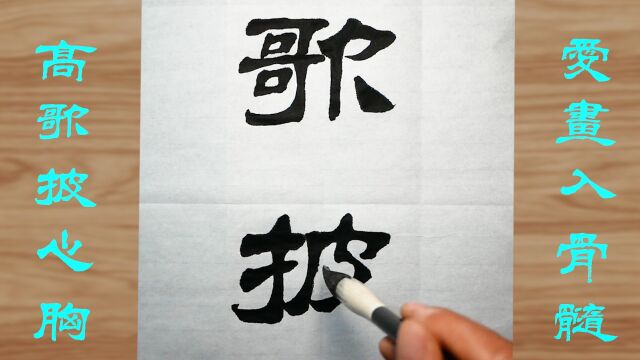 愛畫入骨髓
歌披
高歌披心胸